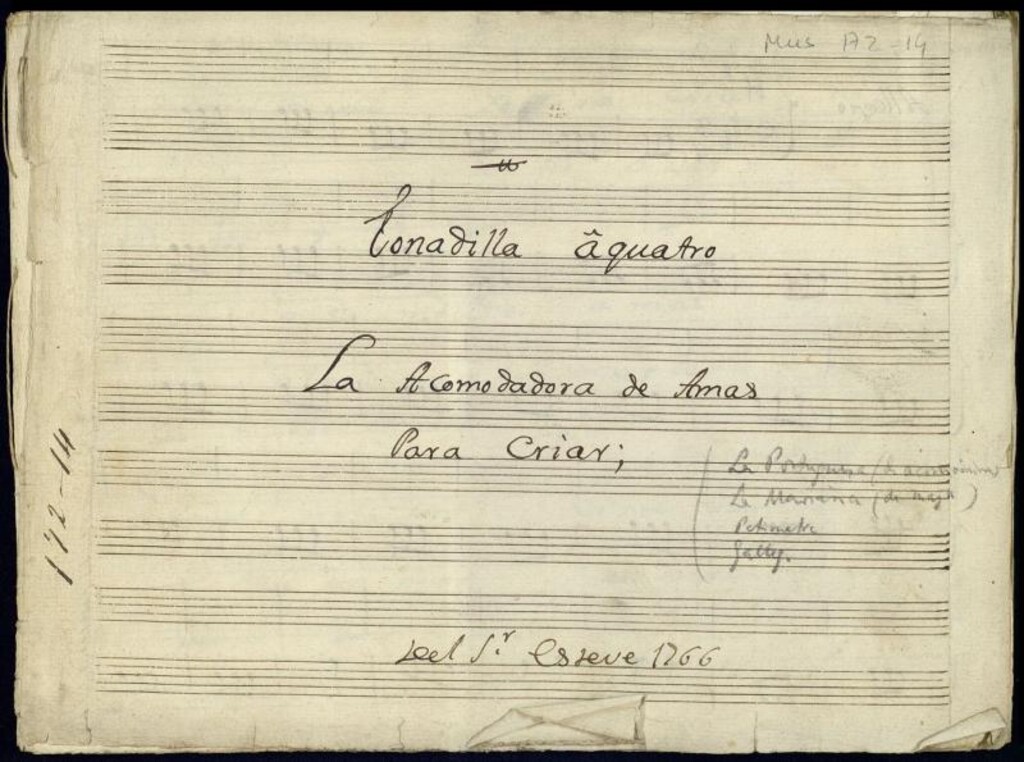 Mus 172-14
Tonadilla âquatro
La Acomodadora de Amas
Para Criar;
La Portuguesa (de
La Mariana (de
Petimetre
Gallego.
Del S.r Esteve 1766
172-14